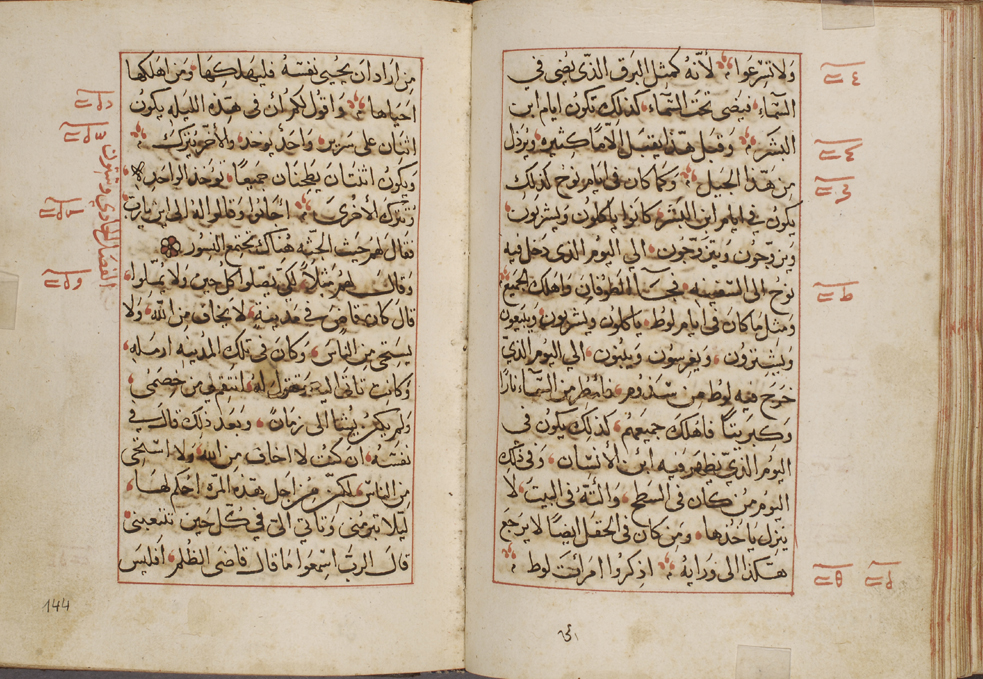 ولا تسرعوا لأنه كمثل البرق الذي يضى في
السماء فيضى تحت السماء كذلك تكون ايام ابن
البشر وقبل هذا يقبل الآمًا كثيره ويرذل
من هذا الجيل وكما كان في ايام نوح كذلك
يكون في ايام ابن البشر كانوا ياكلون ويشربون
ويزوجون ويتزوجون الى اليوم الذي دخل فيه
نوح الى السفينه فجآ الطوفان واهلك الجميع
ومثل ما كان في ايام لوط ياكلون ويشربون ويبيعون
ويشترون ويغرسون ويبنون الى اليوم الذي
خرج فيه لوط من سدوم فامطر من السمآ نارًا
وكبريتًا فاهلك جميعهم كذلك يكون في
اليوم الذي يظهر فيه ابن الانسان وفي ذلك
اليوم من كان في السطح والته في البيت لا
ينزل ياخذها ومن كان في الحقل ايضًا لا يرجع
هكذا الى ورايه اذكروا امرات لوط
من اراد ان يحيي نفسه فليهلكها ومن اهلكها
احياها واقول لكم ان في هذه الليله يكون
اثنان على سرير واحد يوخد والاخر يترك
ويكون اثنتان يطحنان جميعًا توخد الواحده
وتترك الاخرى اجابوا وقالوا له الى اين يارب
فقال لهم حيث الجثه هناك تجتمع النسور
وقال لهم مثلاً لكي يصلوا كل حين ولا يملوا
قال كان قاضى في مدينه لا يخاف من الله ولا
يستحى من الناس وكان في تلك المدينه ارمله
وكانت تاتى اليه وتقول له انتقم لي من خصمى
ولم يكن يشا الى زمان وبعد ذلك قال في
نفسه ان كنت لا اخاف من الله ولا استحى
من الناس لكن من اجل هذه المره احكم لها
ليلا تبرمنى وتاتي الى في كل حين تتعبنى
قال الرب اسمعوا ما قال قاضى الظلم افليس
الفصل الحادي وستون
144